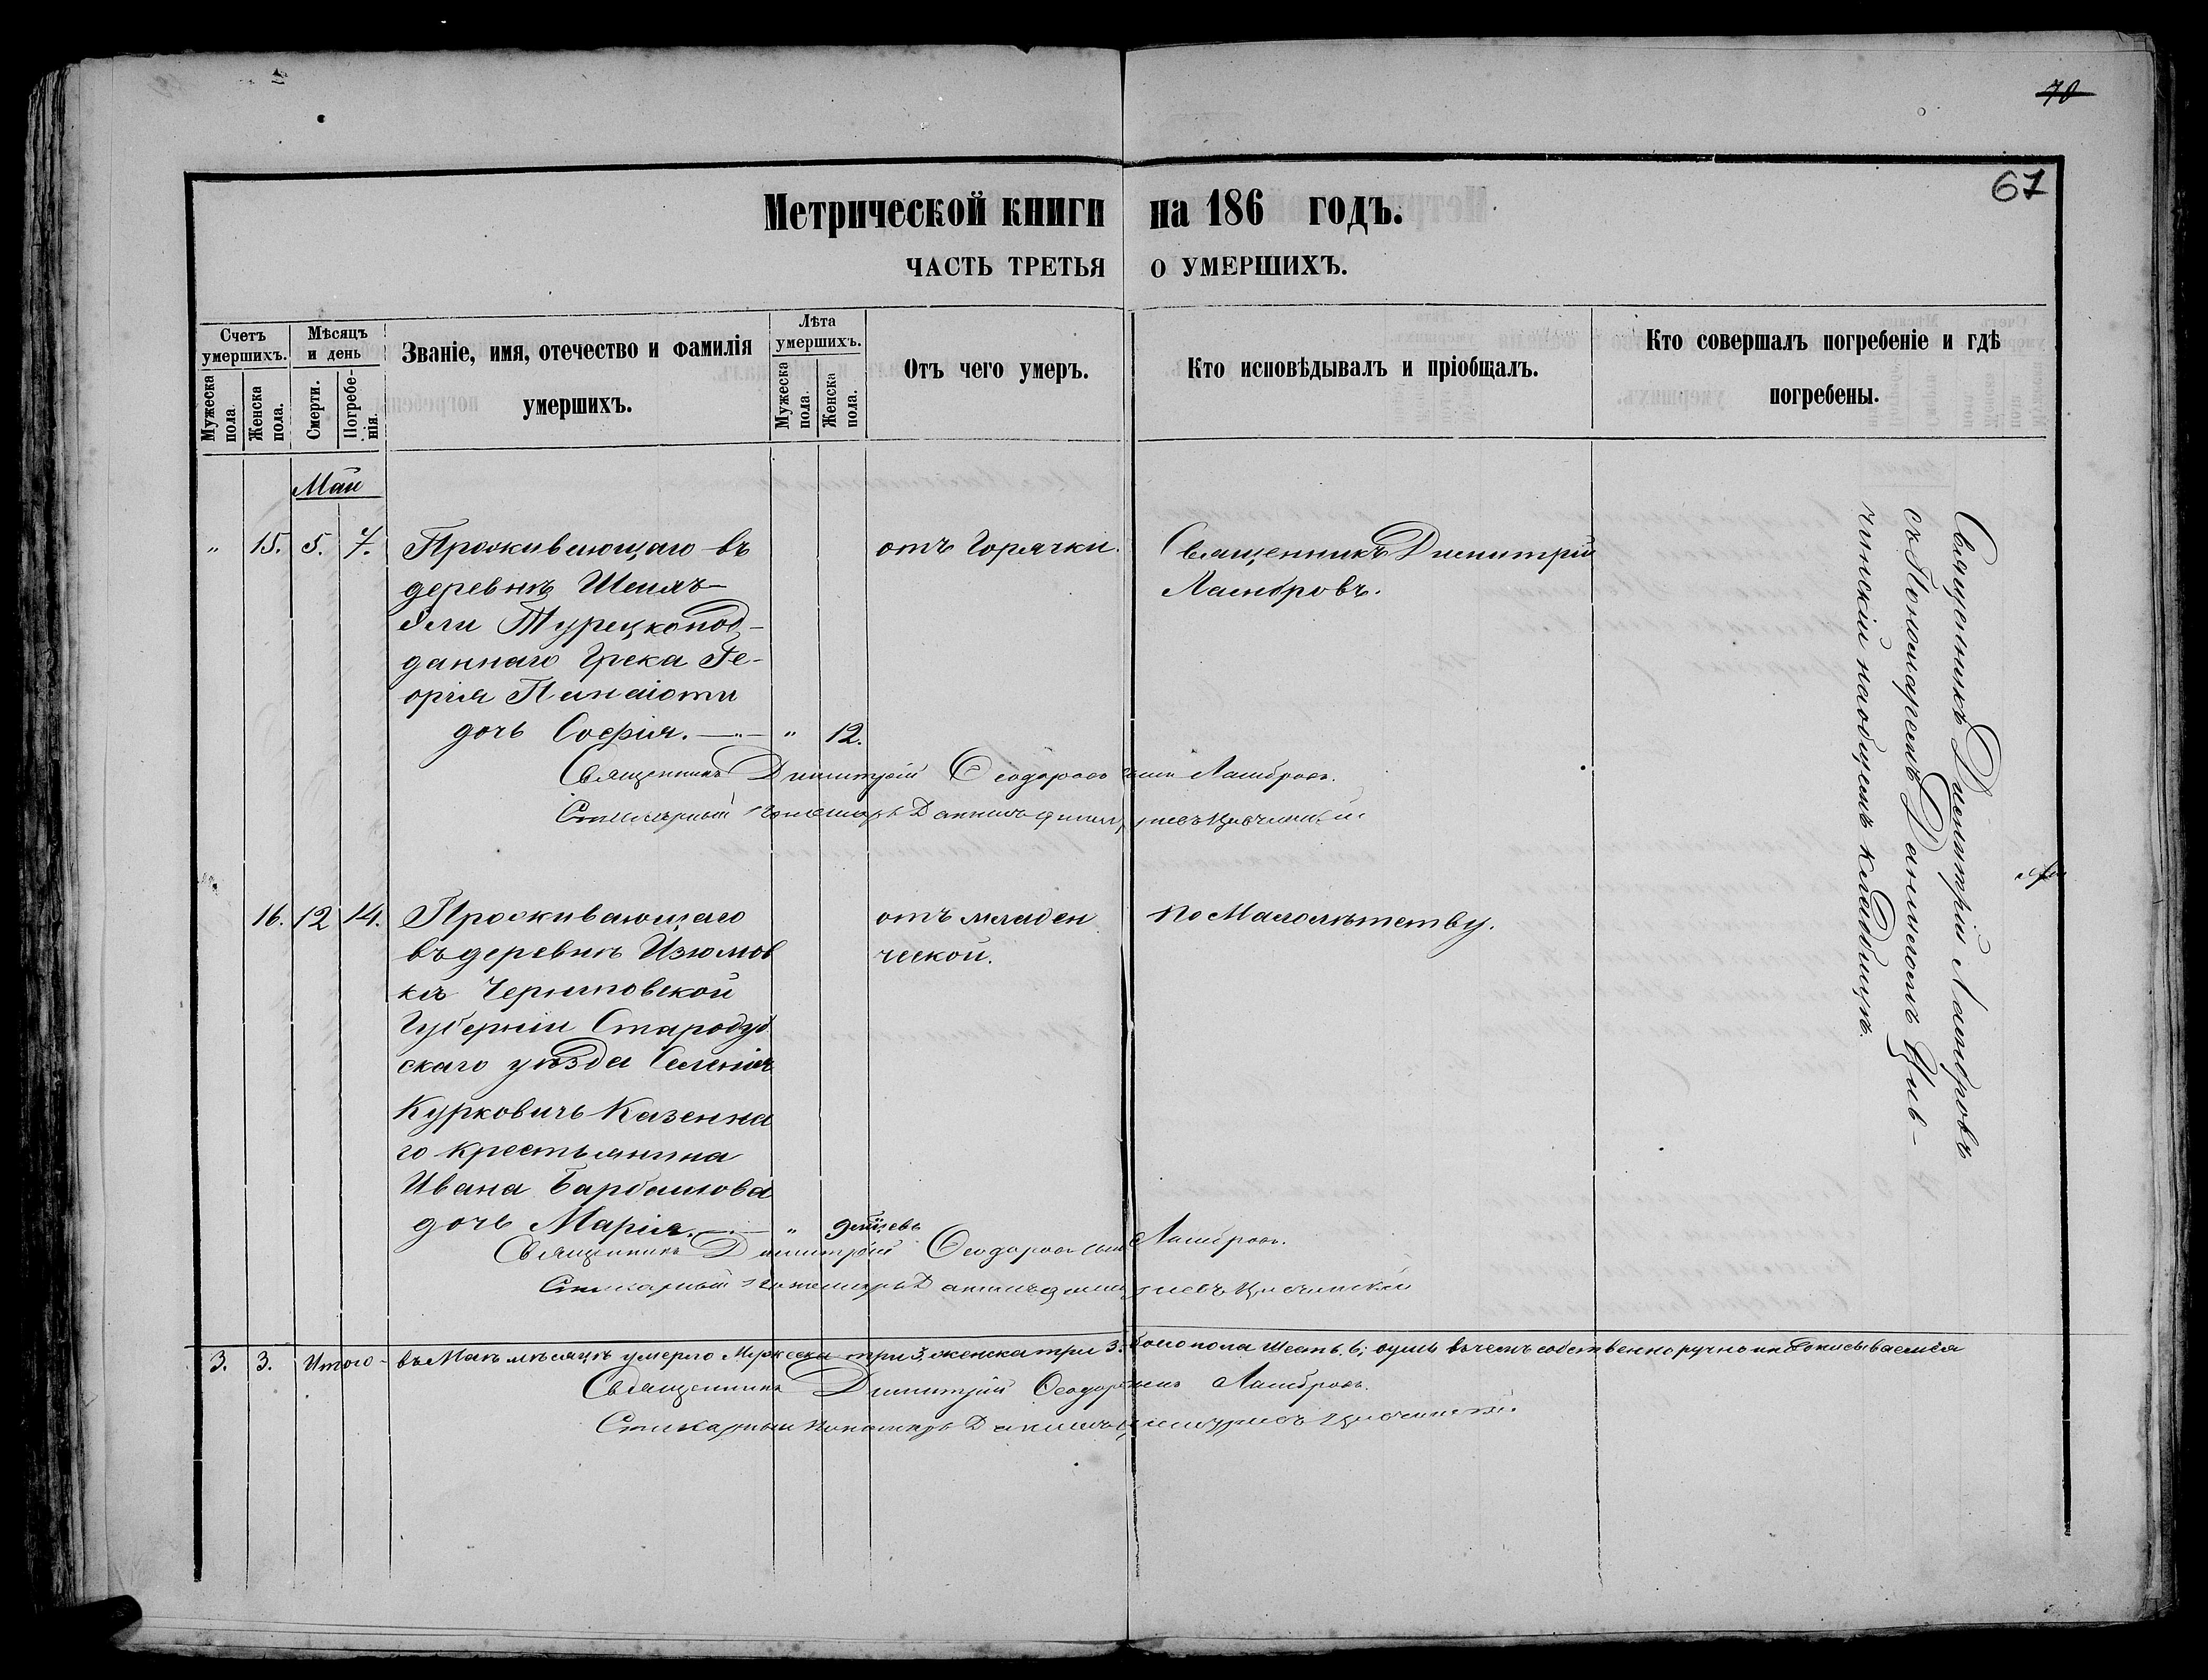 70
67
Метрической книги на 186 годъ.
ЧАСТЬ ТРЕТЬЯ О УМЕРШИХЪ.
Счетъ умершихъ.
Мужеска пола.
Женска пола.
Мѣсяцъ и день
Смерти.
Погребенія.
Званіе, имя, отечество и фамилія умершихъ.
Лѣта умершихъ.
Мужеска пола.
Женска пола.
Отъ чего умеръ.
Кто исповѣдывалъ и пріобщалъ.
Кто совершалъ погребеніе и гдѣ погребены.
Май
" 15. 5. 7. Проживающаго въ
деревнѣ
Эли Турецкопод-
даннаго Грека Ге-
оргія Панаіоти
дочь Софія. — " 12.
отъ Горячки.
Священникъ Димитрій
Ламбровъ.
Священникъ Димитрій Ѳеодоровъ сынъ Ламбровъ.
Стихарный Пономарь Даниилъ
16. 12 14. Проживающаго
въ деревнѣ Изюмов
кѣ Черниговской
Губерніи Стародуб
скаго уѣзда Селенія
Курковичь Казенна
го крестьянина
Ивана Барбашова
дочь Марія. — "
отъ младен
ческой.
по Малолѣтству.
Священникъ Димитрій Ѳеодоровъ сынъ Ламбровъ.
Стихарный Пономарь Даниилъ
Священникъ Димитрій Ламбровъ
съ Пономаремъ Данииломъ Цыб-
чинскій на общемъ кладбищѣ.
3. 3. Итого - въ Маѣ мѣсяцѣ умерло Мужеска три 3, женска три 3. обоего пола Шесть 6; душъ въ чемъ собственноручно и подписываемся
Священникъ Димитрій Ѳеодоровъ сынъ Ламбровъ.
Стихарный Пономарь Даниилъ